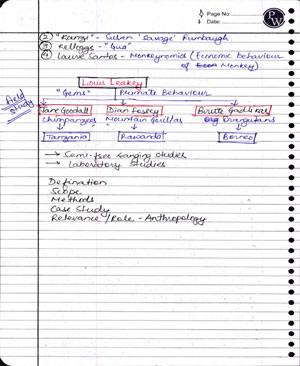 Page No:
Date:
PW
② "Kanzi" - Cuben 'Savage' Rumbaugh
③ Kelloggs - "Gua"
④ Laurie Santos - Monkeynomics (Economic behaviour
of Monkey)
Louis Leakey
field study
"Gems" Primate Behaviour
Jane Goodall Dian Fossey Birute Galdikas
Chimpanzees Mountain Gorillas Orangutans
Tanzania Rawanda Borneo
→ Semi-free ranging studies
→ Laboratory Studies
Defination
Scope
Methods
Case Study
Relevance/Role - Anthropology